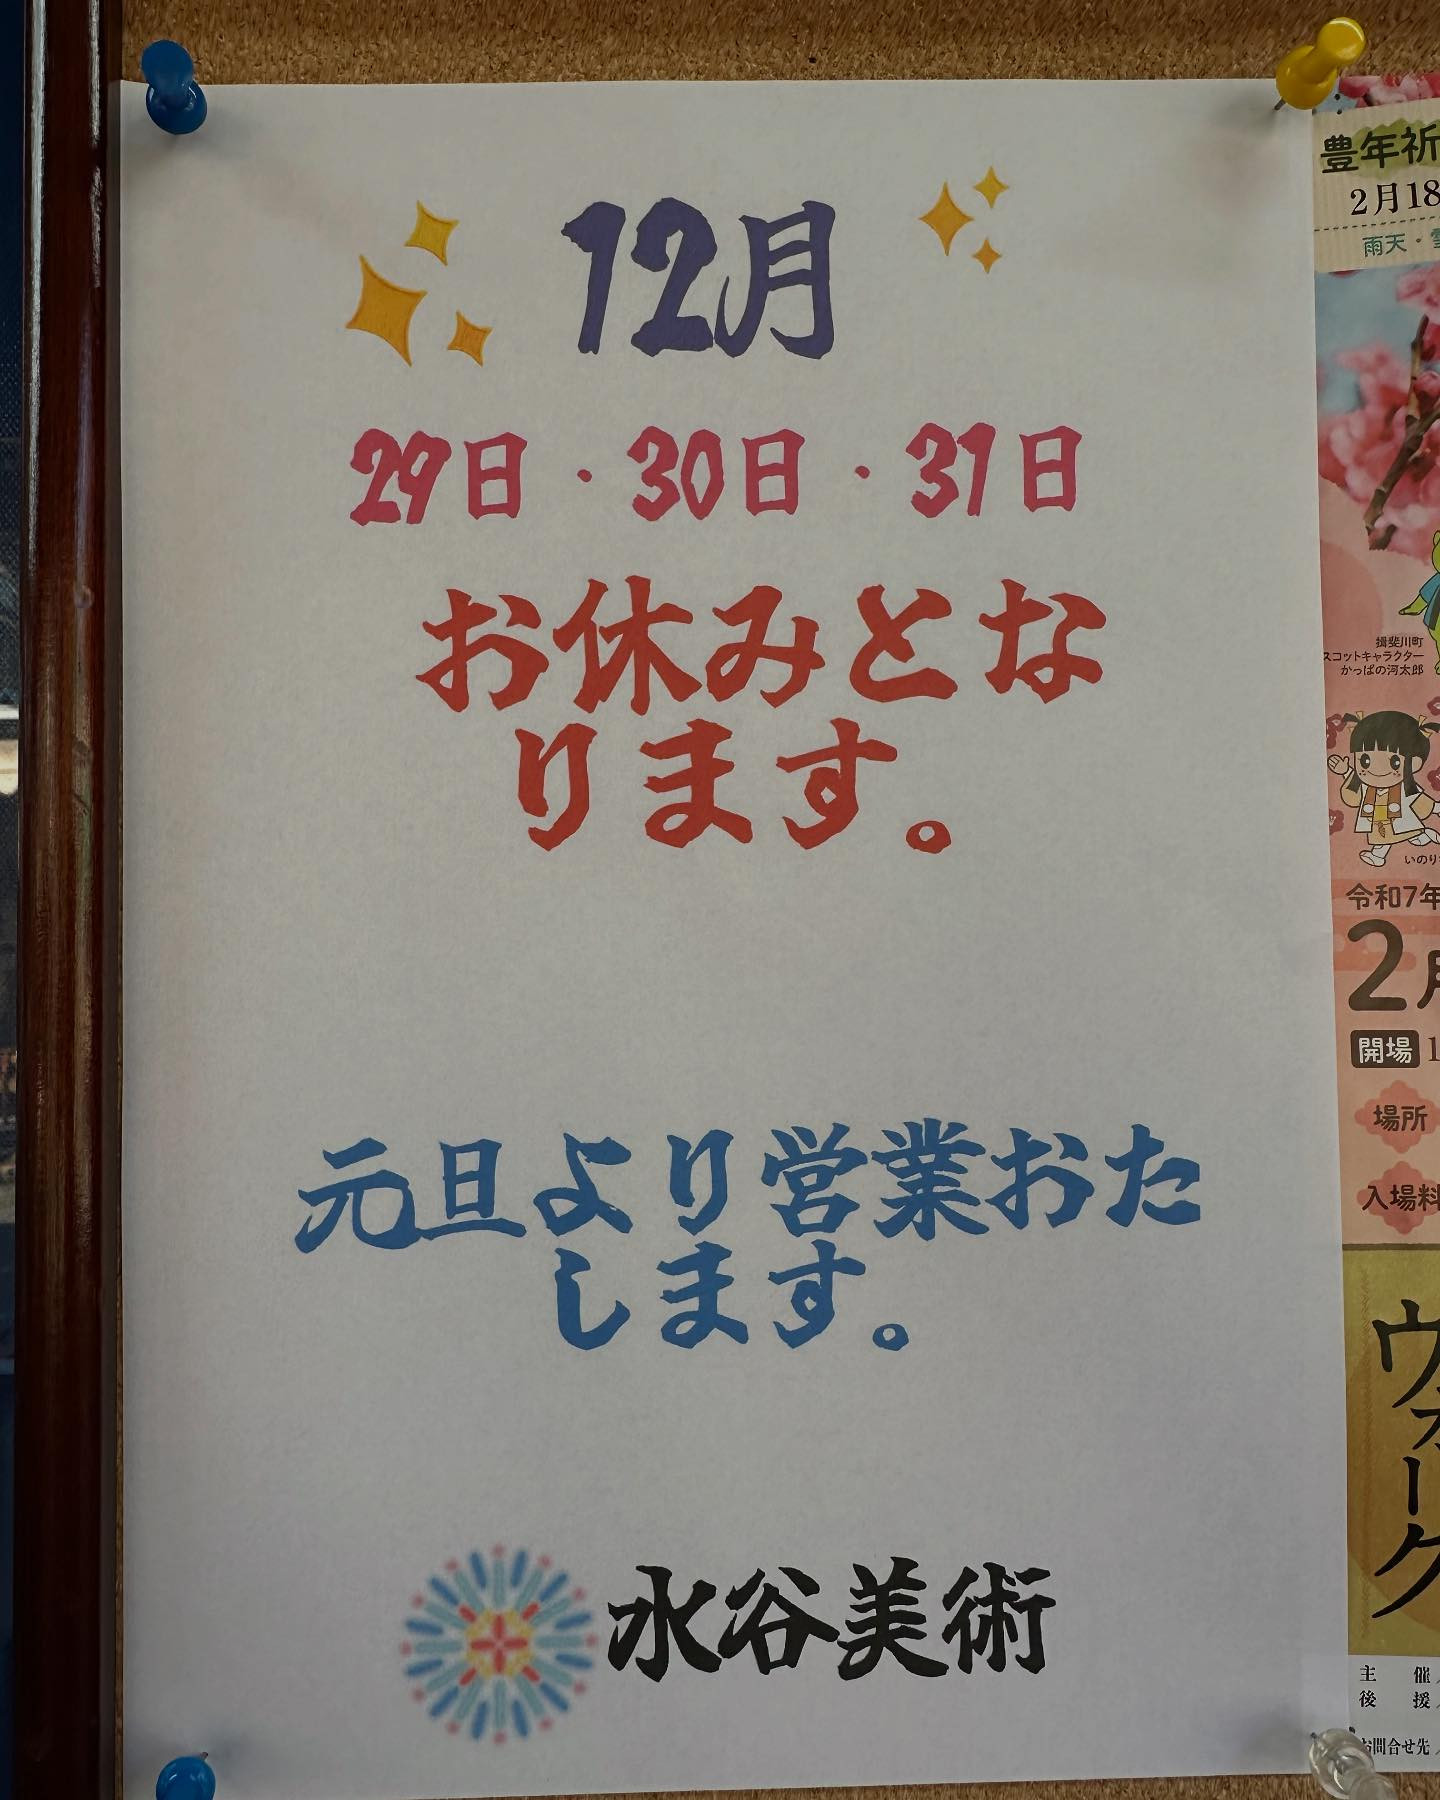 12月
29日・30日・31日
お休みとな
ります。
元旦より営業おた
します。
水谷美術
豊年祈
2月18
雨天・
揖斐川町
スコットキャラクター
かっぱの河太郎
いのり
令和7年
2月
開場 1
場所
入場料
ウォーク
主 催
後 援
お問合せ先